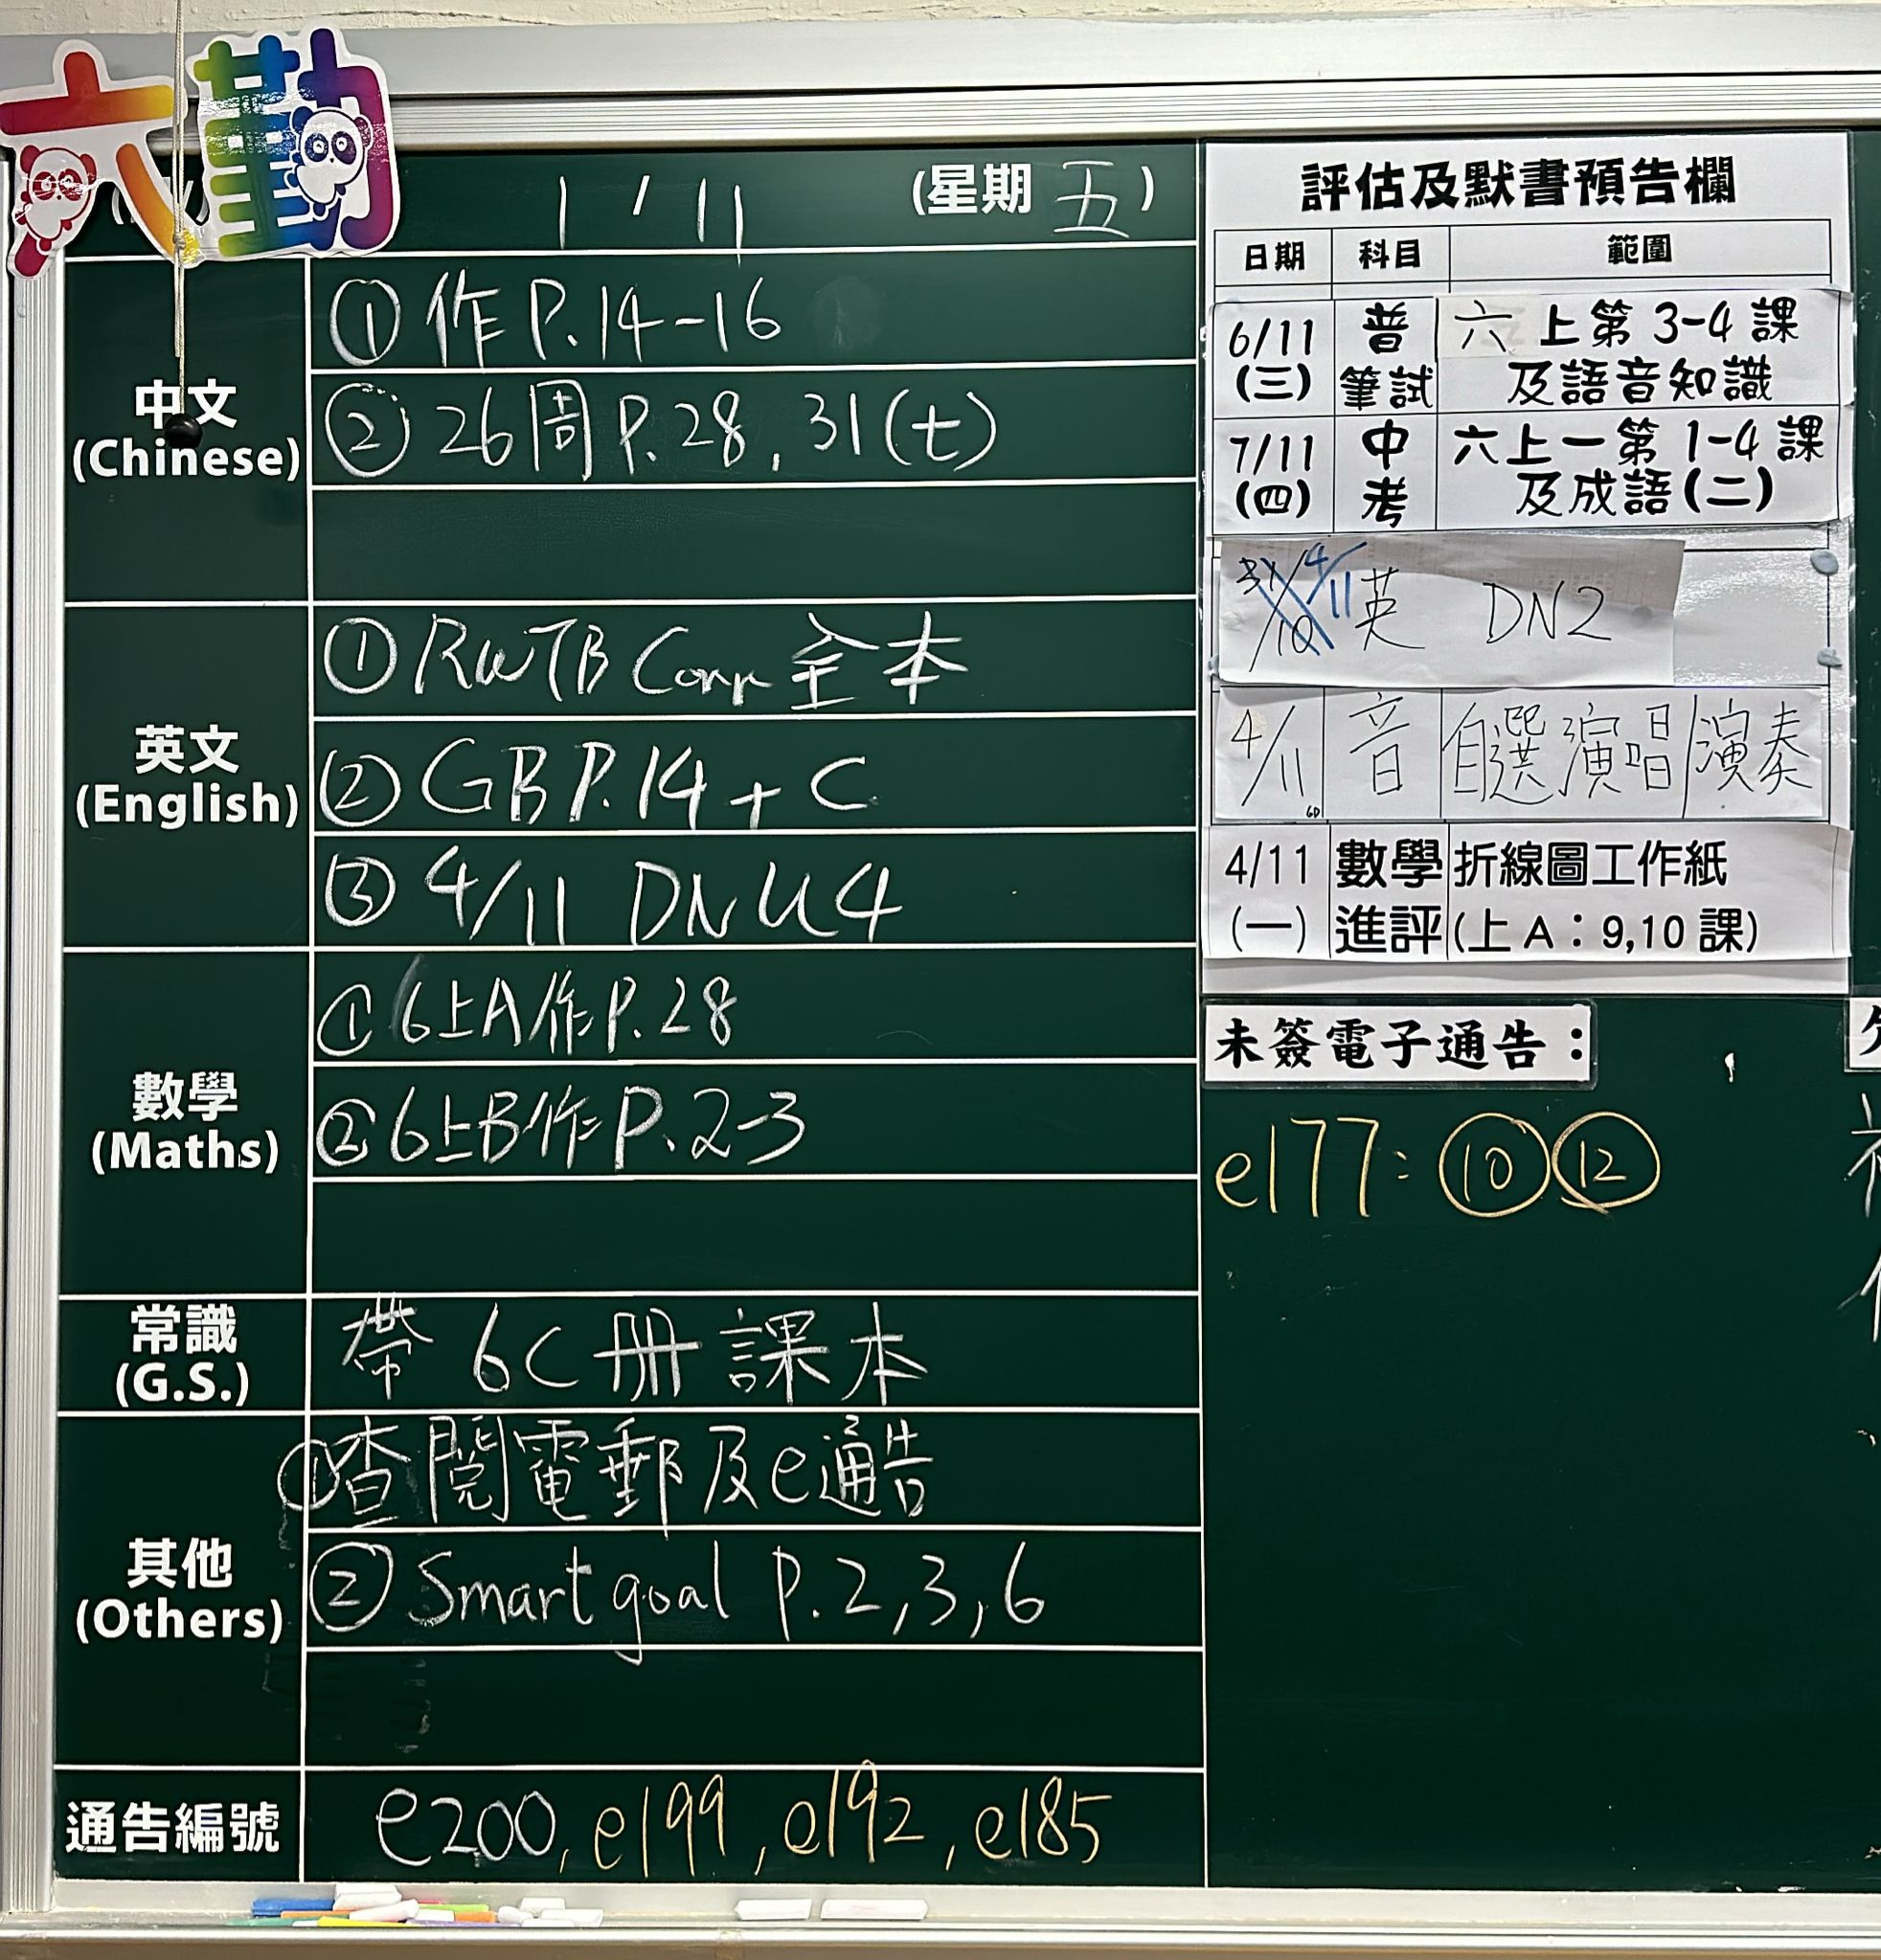 六勤
1 / 11 (星期 五)
中文
(Chinese)
① 作 P.14-16
② 26周 P.28, 31(七)
英文
(English)
① RWTB Corr 全本
② GB P.14 + C
③ 4/11 DN U4
數學
(Maths)
① 6上A作 P.28
② 6上B作 P.2-3
常識
(G.S.)
帶 6C 冊 課本
其他
(Others)
① 查閱電郵及e通告
② Smart goal P.2,3,6
通告編號
e200, e199, e192, e185
評估及默書預告欄
日期 科目 範圍
6/11 普 六上第 3-4 課
(三) 筆試 及語音知識
7/11 中 六上一第 1-4 課
(四) 考 及成語(二)
31/10 4/11 英 DN2
4/11 音 自選演唱/演奏
4/11 數學 折線圖工作紙
(一) 進評 (上 A：9,10 課)
未簽電子通告：
e177: ⑩ ⑫